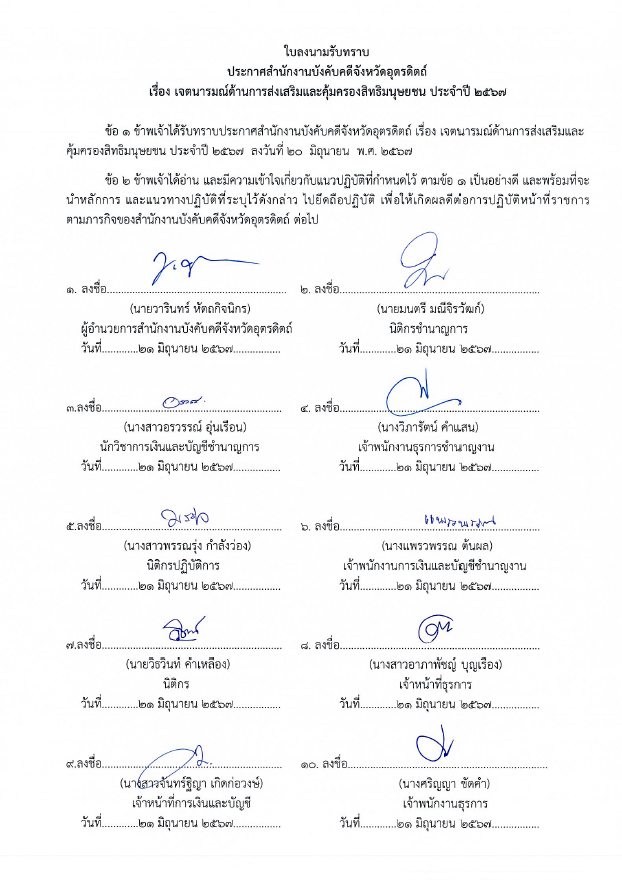 ใบลงนามรับทราบ
ประกาศสำนักงานบังคับคดีจังหวัดอุตรดิตถ์
เรื่อง เจตนารมณ์ด้านการส่งเสริมและคุ้มครองสิทธิมนุษยชน ประจำปี ๒๕๖๗
ข้อ ๑ ข้าพเจ้าได้รับทราบประกาศสำนักงานบังคับคดีจังหวัดอุตรดิตถ์ เรื่อง เจตนารมณ์ด้านการส่งเสริมและ
คุ้มครองสิทธิมนุษยชน ประจำปี ๒๕๖๗ ลงวันที่ ๒๐ มิถุนายน พ.ศ. ๒๕๖๗
ข้อ ๒ ข้าพเจ้าได้อ่าน และมีความเข้าใจเกี่ยวกับแนวปฏิบัติที่กำหนดไว้ ตามข้อ ๑ เป็นอย่างดี และพร้อมที่จะ
นำหลักการ และแนวทางปฏิบัติที่ระบุไว้ดังกล่าว ไปยึดถือปฏิบัติ เพื่อให้เกิดผลดีต่อการปฏิบัติหน้าที่ราชการ
ตามภารกิจของสำนักงานบังคับคดีจังหวัดอุตรดิตถ์ ต่อไป
๑. ลงชื่อ............................................... ๒. ลงชื่อ...............................................
(นายวารินทร์ หัตถกิจนิกร) (นายมนตรี มณีจิรวัฒก์)
ผู้อำนวยการสำนักงานบังคับคดีจังหวัดอุตรดิตถ์ นิติกรชำนาญการ
วันที่............๒๑ มิถุนายน ๒๕๖๗................ วันที่............๒๑ มิถุนายน ๒๕๖๗................
๓.ลงชื่อ............................................... ๔. ลงชื่อ...............................................
(นางสาวอรวรรณ์ อุ่นเรือน) (นางวิภารัตน์ คำแสน)
นักวิชาการเงินและบัญชีชำนาญการ เจ้าพนักงานธุรการชำนาญงาน
วันที่............๒๑ มิถุนายน ๒๕๖๗................ วันที่............๒๑ มิถุนายน ๒๕๖๗................
๕.ลงชื่อ............................................... ๖. ลงชื่อ...............................................
(นางสาวพรรณรุ่ง กำลังว่อง) (นางแพรวพรรณ ต้นผล)
นิติกรปฏิบัติการ เจ้าพนักงานการเงินและบัญชีชำนาญงาน
วันที่............๒๑ มิถุนายน ๒๕๖๗................ วันที่............๒๑ มิถุนายน ๒๕๖๗................
๗.ลงชื่อ............................................... ๘. ลงชื่อ...............................................
(นายวิธวินท์ คำเหลือง) (นางสาวอาภาพัชญ์ บุญเรือง)
นิติกร เจ้าหน้าที่ธุรการ
วันที่............๒๑ มิถุนายน ๒๕๖๗................ วันที่............๒๑ มิถุนายน ๒๕๖๗................
๙.ลงชื่อ............................................... ๑๐. ลงชื่อ...............................................
(นางสาวจันทร์ฐิญา เกิดก่อวงษ์) (นางศริญญา ชัดคำ)
เจ้าหน้าที่การเงินและบัญชี เจ้าพนักงานธุรการ
วันที่............๒๑ มิถุนายน ๒๕๖๗................ วันที่............๒๑ มิถุนายน ๒๕๖๗................